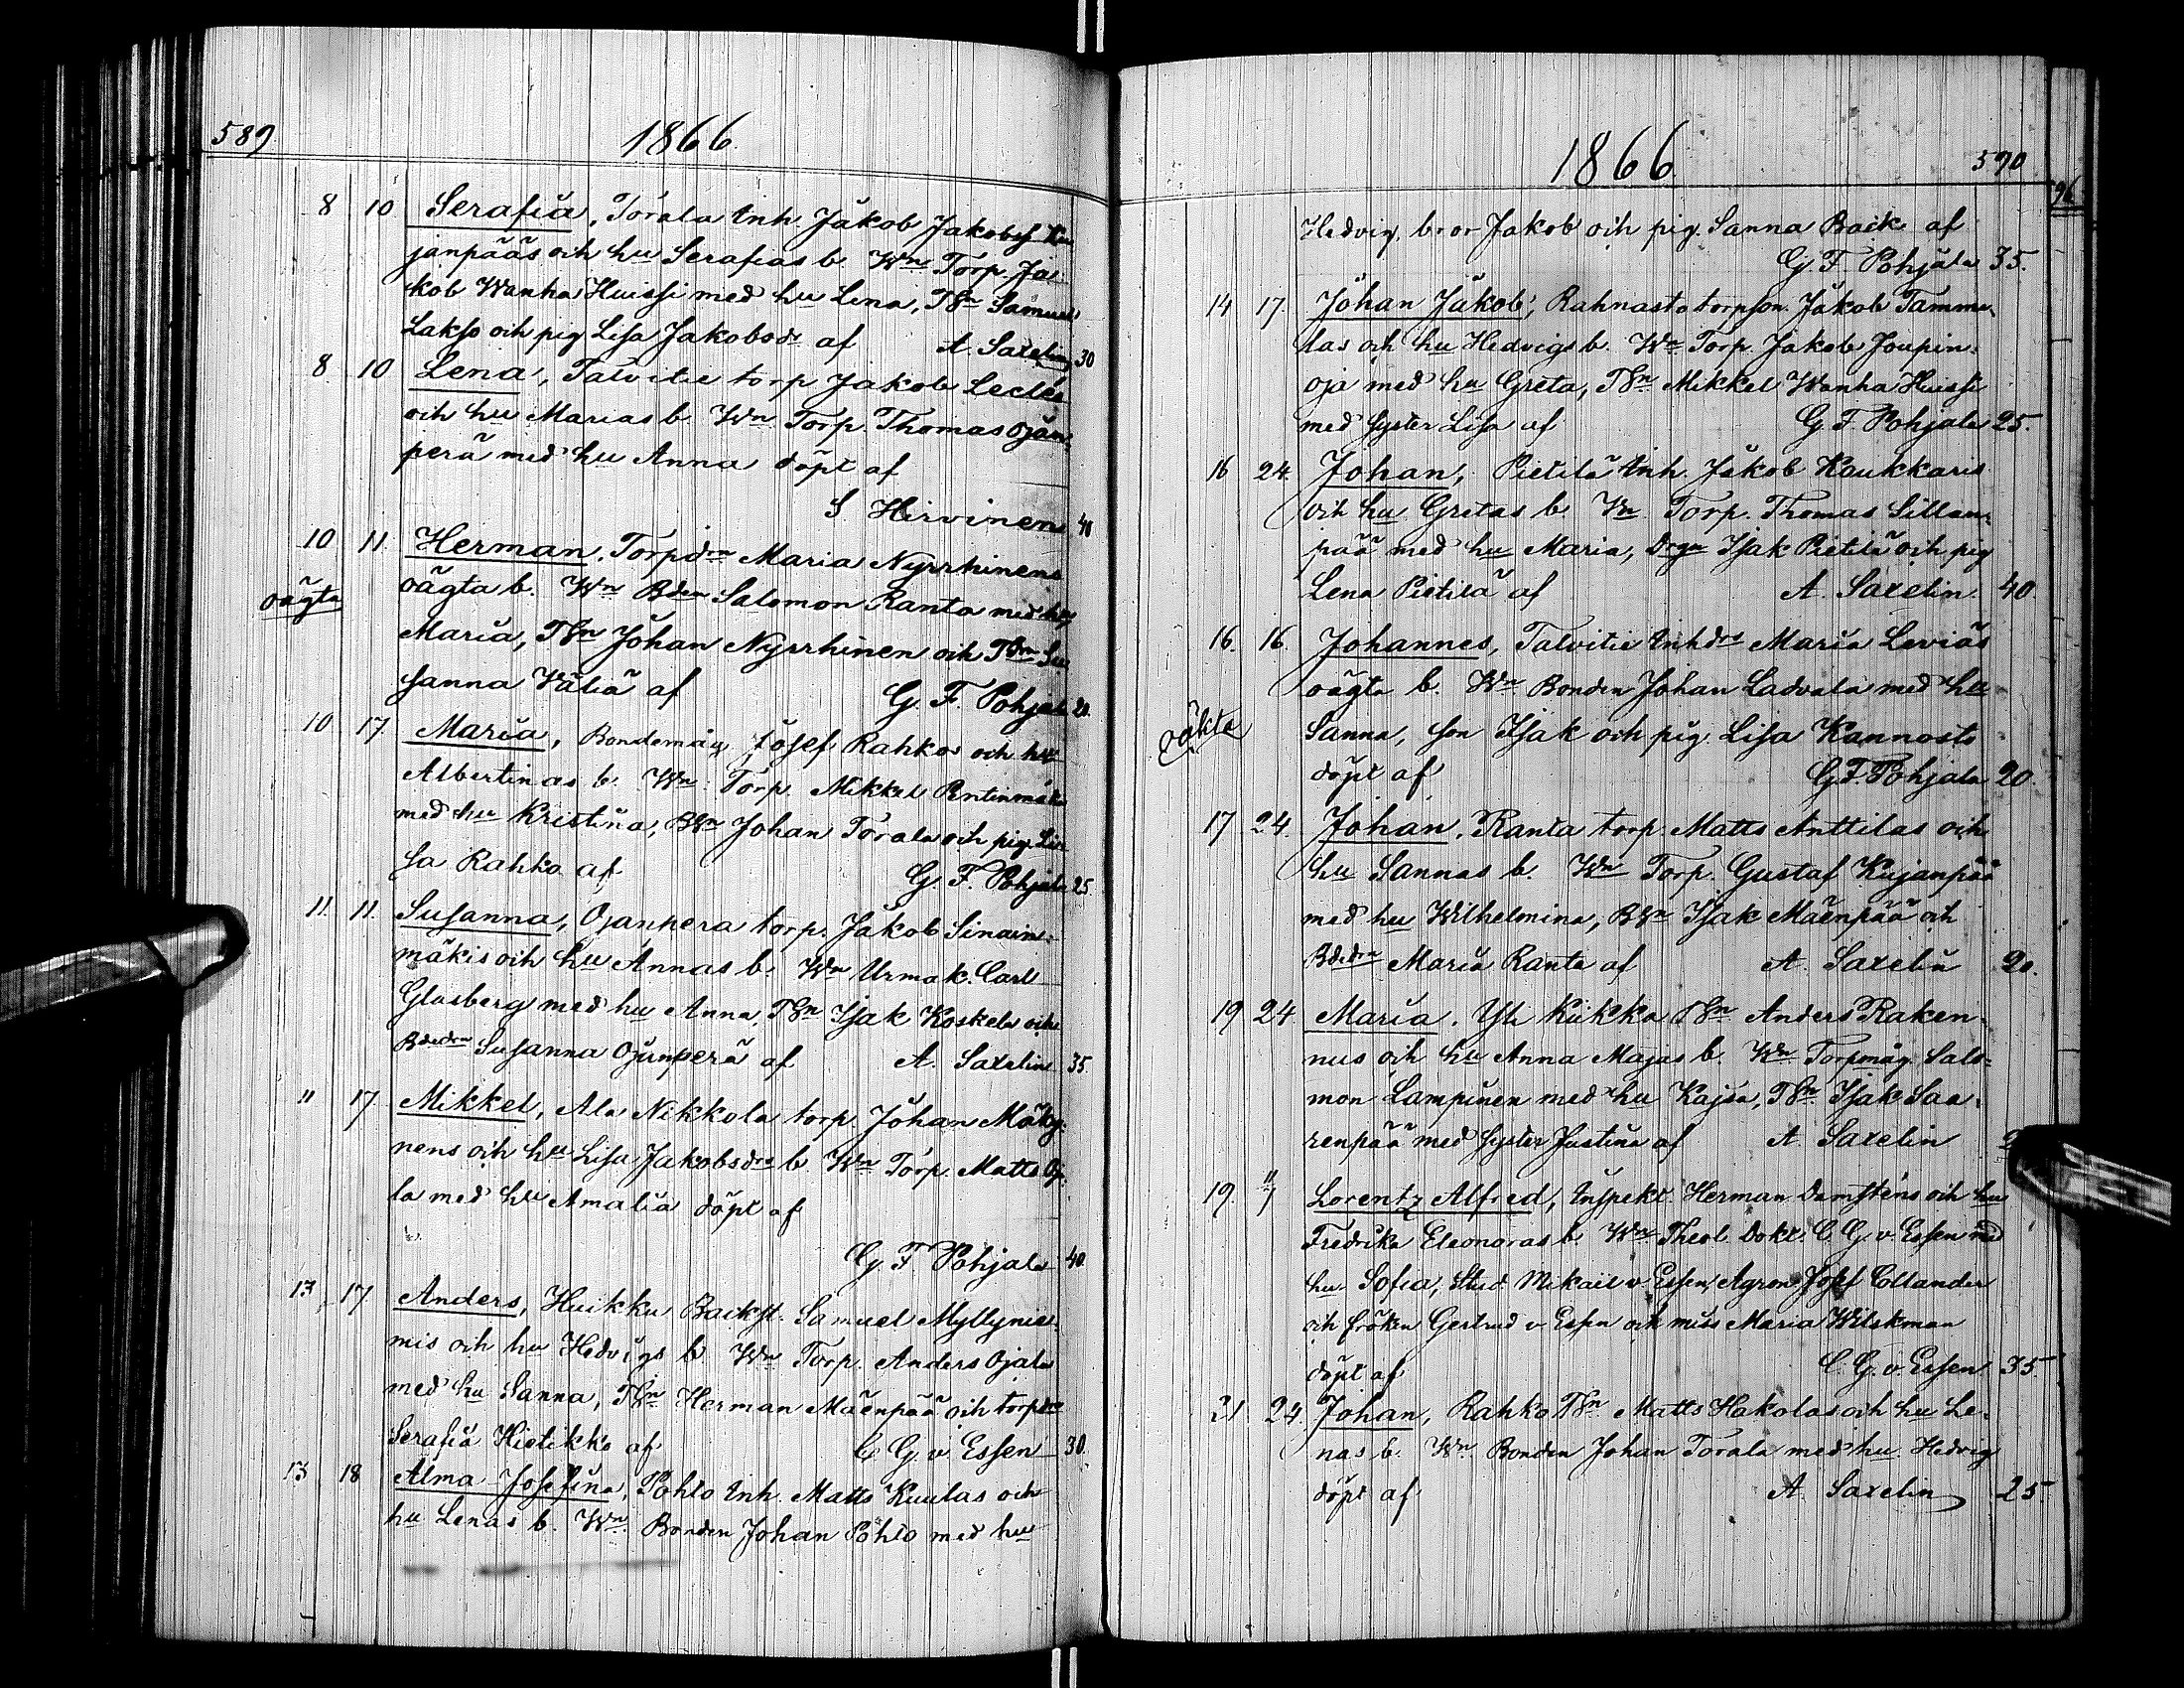 589 1866
8 10 Serafia, Torala Inh. Jakob Jakobss Ku
janpääs och hu Serafias b. Wn Torp. Ja-
kob Wanha Huissi med hu Lena, TSn Samuel
Lakso och pig Lisa Jakobsdr af A. Saxelin 30
8. 10 Lena, Talvitie torp Jakob
och hu Marias b. Wn Torp. Thomas Ojan-
perä med hu Anna döpt af
S Hirvinen 40
10 11. Herman, Torpdrn Maria Nyrrhinens
oägta oägta b. Wn Bden Salomon Ranta med hu
Maria, TSn Johan Nyrrhinen och TDrn Su
sanna Väliä af G. F. Pohjala 20.
10 17. Maria, Bondemåg Josef Rahkos och hu
Albertinas b. Wn Torp. Mikkel Pentinmäki
med hu Kristina, BSn Johan Torala och pig Li
sa Rahko af G. F. Pohjala 25.
11. 11. Susanna, Ojanpera torp. Jakob
mäkis och hu Annas b. Wn Urmak. Carl
Glasberg med hu Anna, TSn Isak Koskela och
Bdedrn Susanna Ojanperä af A. Saxelin 35
" 17 Mikkel, Ala Nikkola torp. Johan Mäky-
nens och hu Lisa Jakobsdrs b. Wn Torp. Matts Oja
la med hu Amalia döpt af
G. F. Pohjala 40
13 17 Anders, Huikku Backst. Samuel Myllynie-
mis och hu Hedvigs b. Wn Torp. Anders Ojala
med hu Sanna, TSn Herman Mäenpää och torpdrn
Serafia Hietikko af C G. v. Essen 30.
13 18 Alma Josefina, Pohto Inh. Matts Kuulas och
hu Lenas b. Wn Bonden Johan Pohto med hu
1866 590
96
Hedvig, bror Jakob och pig. Sanna Back af
G. F. Pohjala 35.
14 17. Johan Jakob, Rahnasto torpson Jakob Tamme-
las och hu Hedvigs b. Wn Torp. Jakob Joupin-
oja med hu Greta, TSn Mikkel Wanha Huissi
med syster Lisa af G. F. Pohjala 25.
16 24. Johan, Pietilä Inh. Jakob Kaukkaris
och hu Gretas b. Wn Torp. Thomas Sillan-
pää med hu Maria, Drgn Isak Pietilä och pig
Lena Pietilä af A. Saxelin 40.
16. 16. Johannes, Talvitie Inhdrs Maria Leviäs
oägta b. Wn Bonden Johan Ladvala med hu
oäkta Sanna, son Isak och pig. Lisa Kannosto
döpt af G. F. Pohjala 20
17 24. Johan, Ranta torp. Matts Anttilas och
hu Sannas b. Wn Torp. Gustaf Kujanpää
med hu Wilhelmina, BSn Isak Mäenpää och
Bdedrn Maria Ranta af A. Saxelin 20.
19 24. Maria, Yli Kukko TSn Anders Raken-
nus och hu Anna Majas b. Wn Torpmåg. Salo-
mon Lampinen med hu Kajsa, TSn Isak Saa-
renpää med syster Justina af A Saxelin
19. "/7 Lorentz Alfred, Inspekt. Herman Damsténs och hu
Fredrika Eleonoras b. Wn Theol. Dokt. C. G. v. Essen med
hu Sofia, Stud. Mikael v Essen, Agron. Josef Collander
och fröken Gertrud v Essen och miss Maria Wilskman
döpt af C. G. v. Essen 35.
21 24. Johan, Rahko TSn Matts Hakolas och hu Le-
nas b. Wn Bonden Johan Torala med hu Hedvig
döpt af A. Saxelin 25.